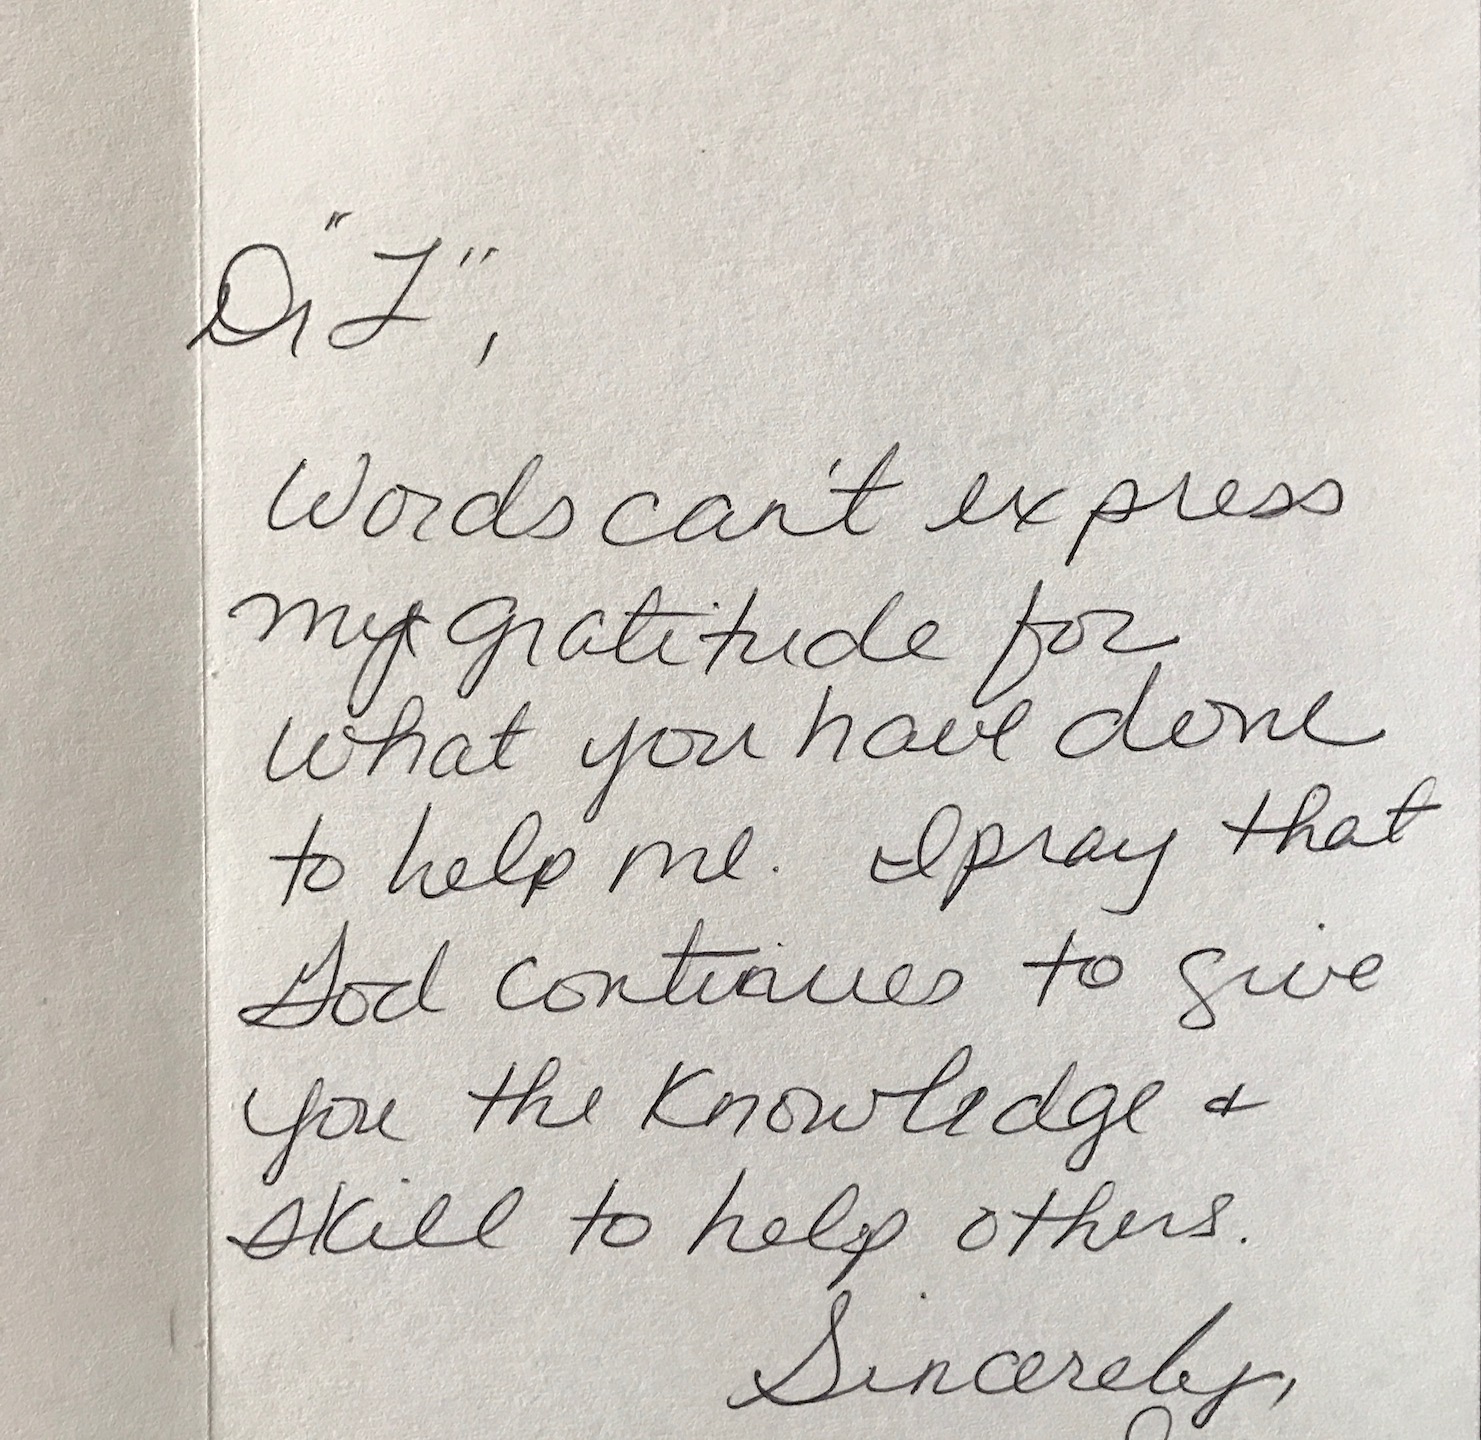 Dr "Z",
Words can't express
my gratitude for
what you have done
to help me. I pray that
God continues to give
you the knowledge &
skill to help others.
Sincerely,